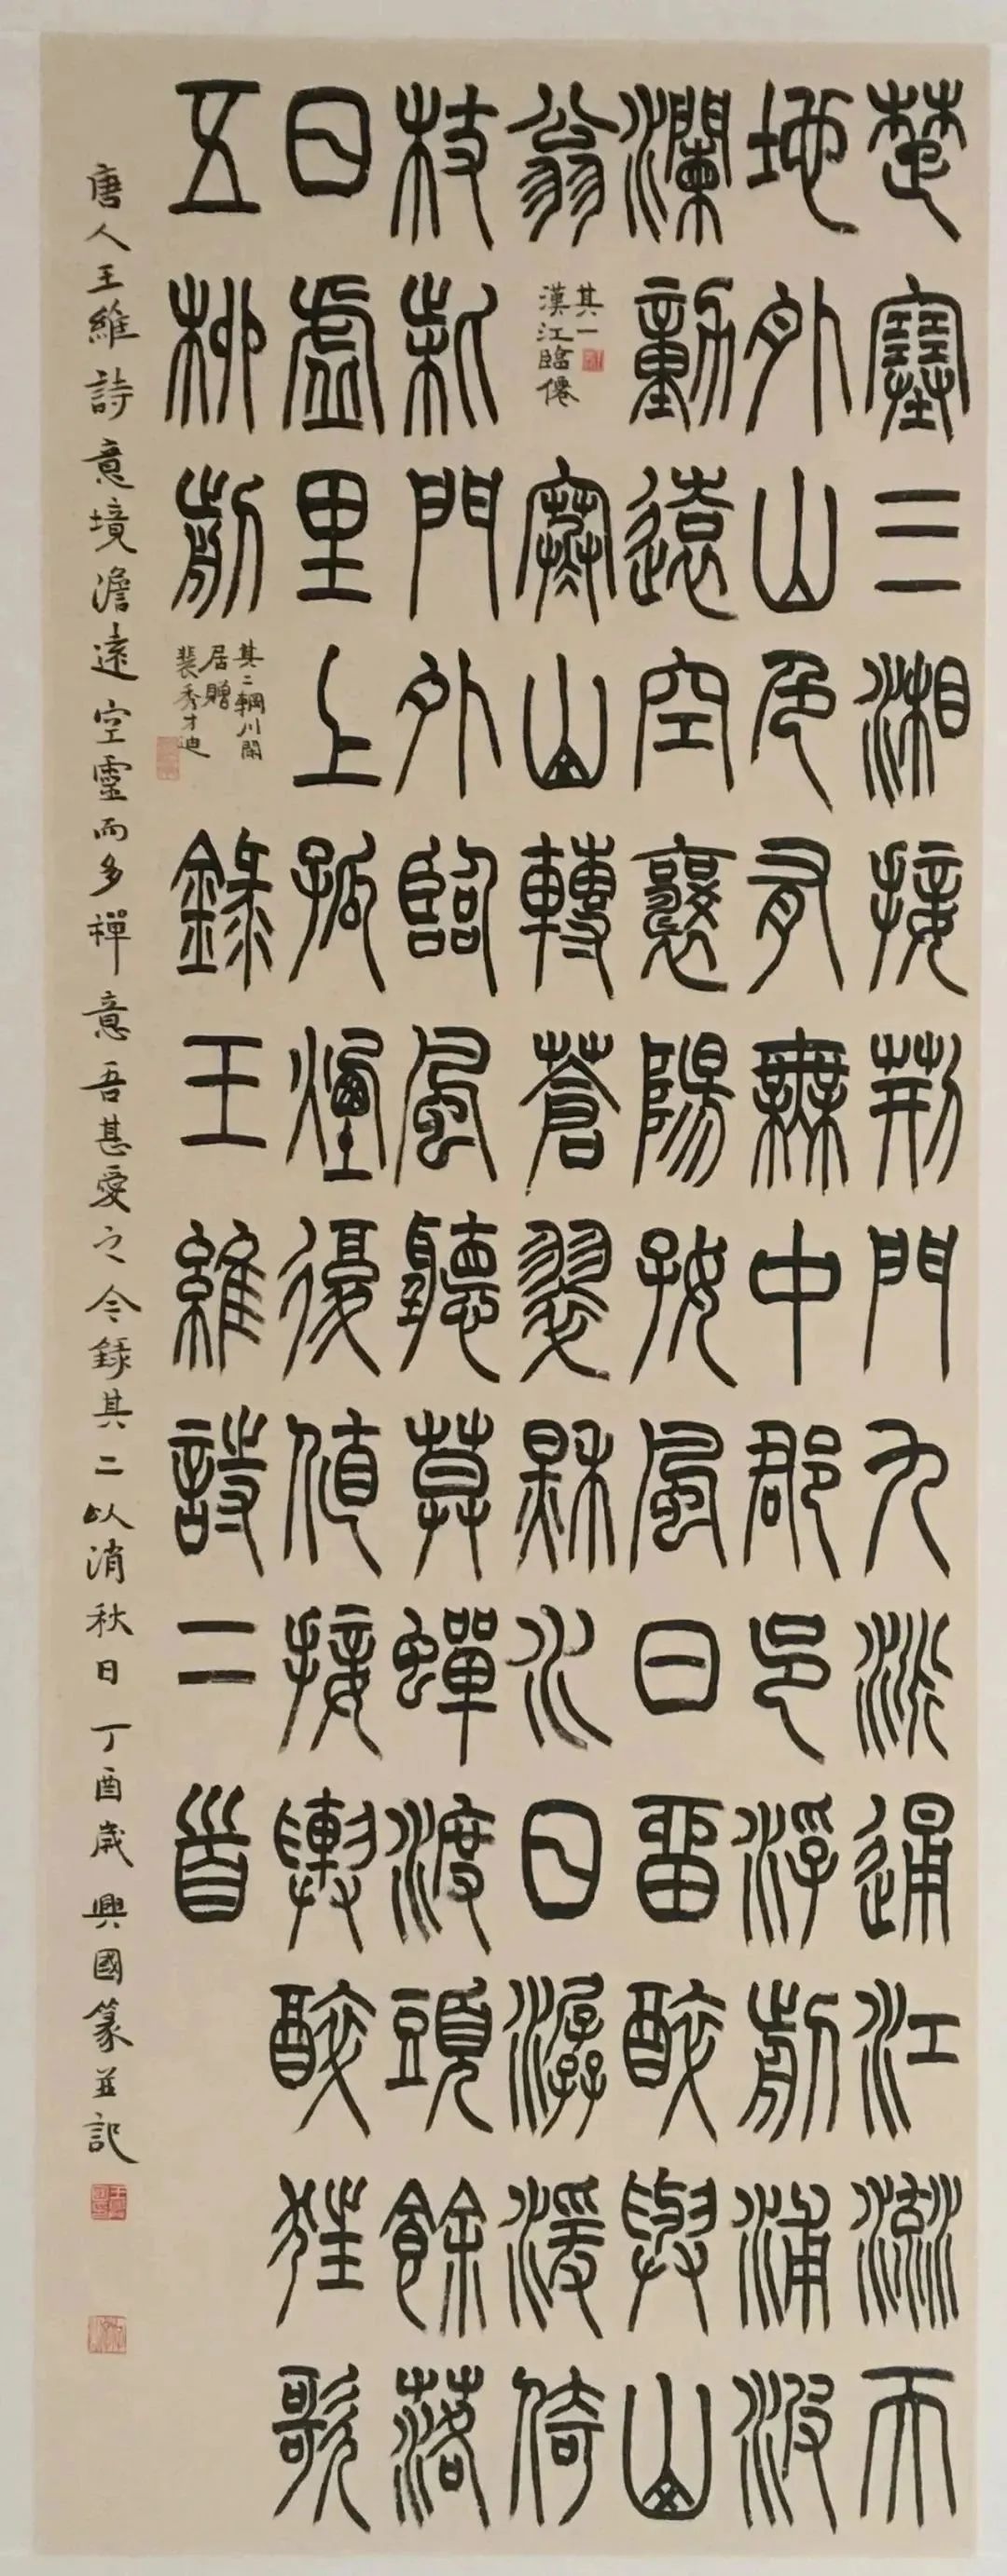 楚塞三湘接荊門九派通江流天
地外山色有無中郡邑浮前浦波
瀾動遠空襄陽好風日留醉與山
翁
其一
漢江臨僊
寒山轉蒼翠秋水日潺湲倚
杖柴門外臨風聽暮蟬渡頭餘落
日虛里上孤煙復值接輿醉狂歌
五柳前
其二輞川閑
居贈
裴秀才迪
錄王維詩二首
唐人王維詩意境澹遠空靈而多禪意吾甚愛之今錄其二以消秋日丁酉歲興國篆並記